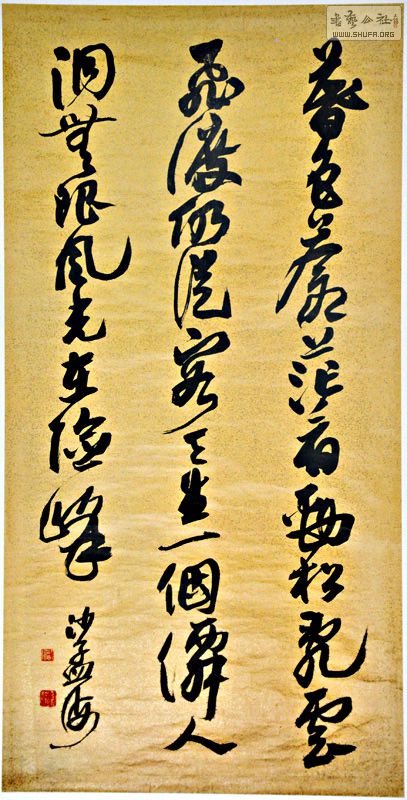 暮色蒼茫看勁松亂雲
飛渡仍從容天生一個僊人
洞無限風光在險峰
沙孟海
書藝公社
WWW.SHUFA.ORG